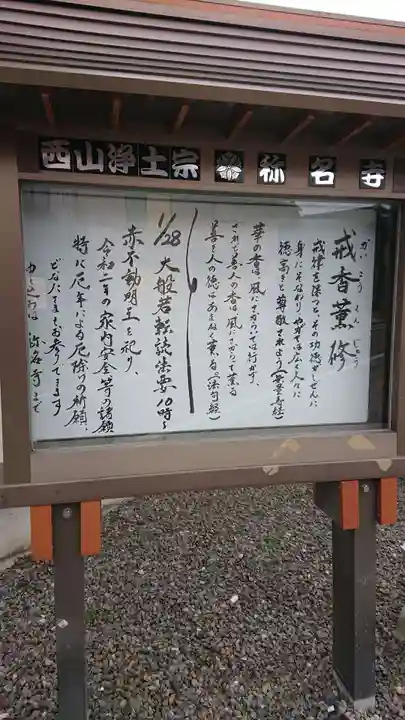 西山浄土宗 称名寺
戒香薫修
かいこうくんじゅう
戒律を保つと、その功徳がしぜんに
身にそなわり
徳高きと尊敬されよう(無量寿経)
華の香は、風にさからっては行かず、
されど善人の香は風にさからって薫る
善き人の徳はあまねく薫る。(法句経)
1/28 大般若転読法要 10時〜
赤不動明王を祀り、
令和二年の家内安全等の諸願
特に厄年による厄除けの祈願、
どなたさまもお参りできます